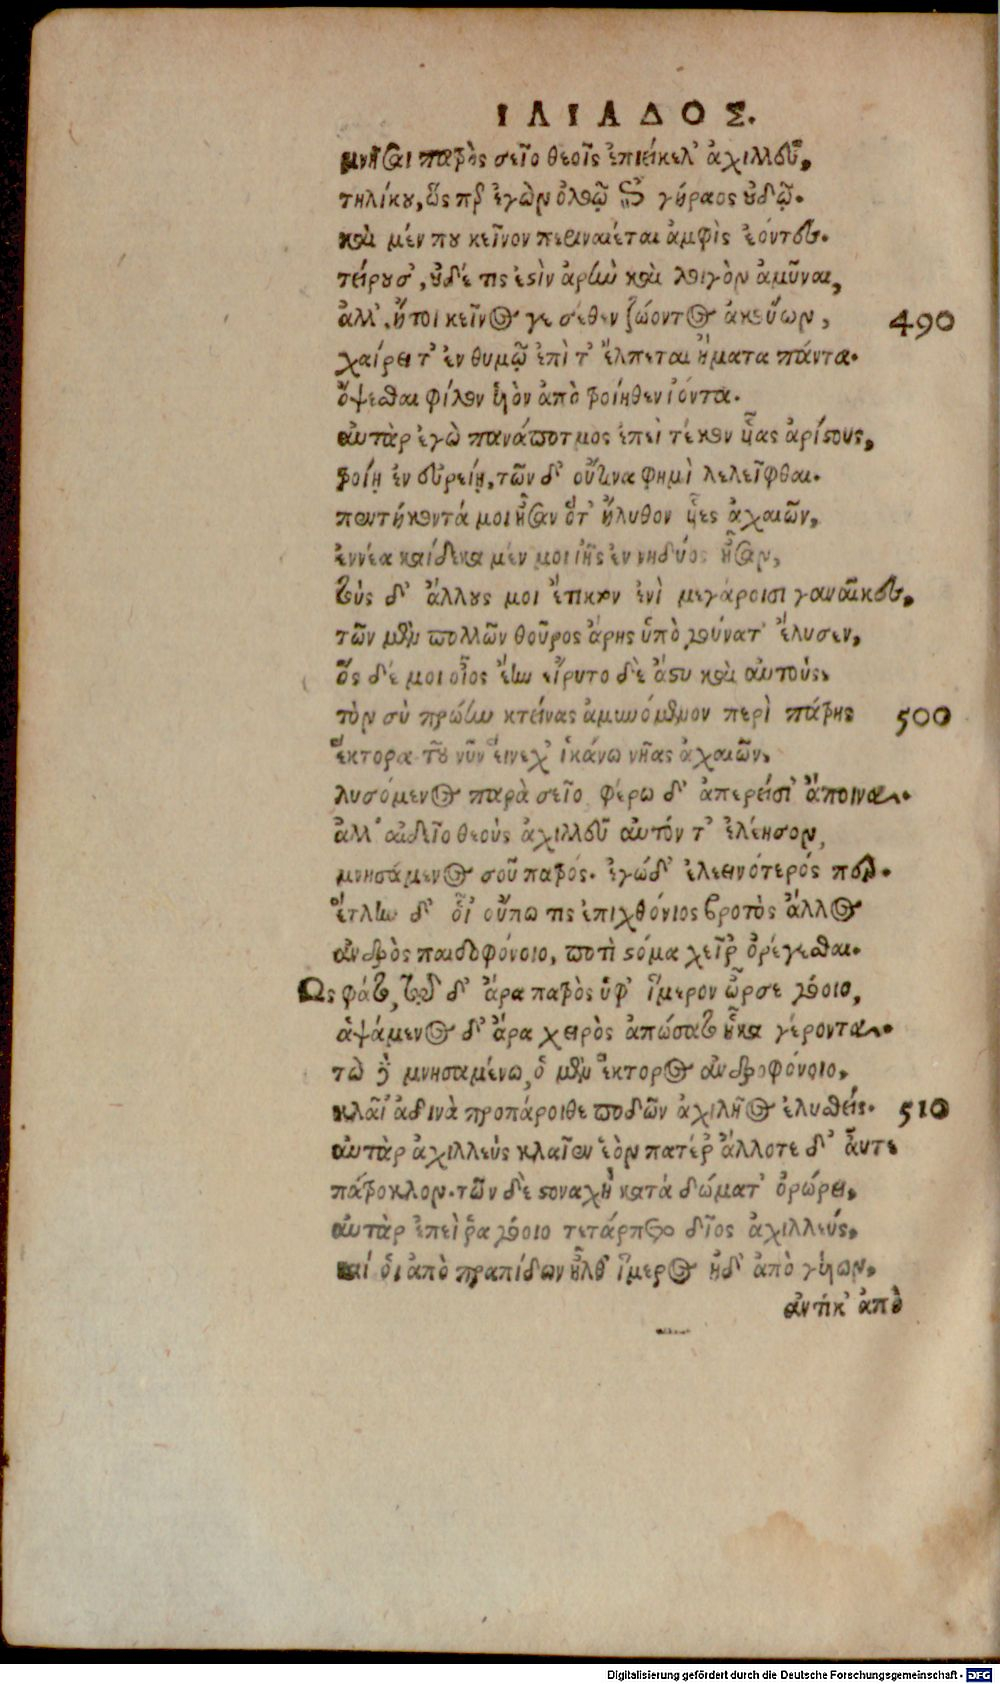 ΙΛΙΑΔΟΣ.
μνῆσαι πατρὸς σεῖο θεοῖς ἐπιείκελ' ἀχιλλεῦ,
τηλίκου, ὥς περ ἐγὼν ὀλοῷ ἐπὶ γήραος οὐδῷ.
καὶ μέν που κεῖνον περιναιέται ἀμφὶς ἐόντες.
τείρουσ', οὐδέ τις ἐστὶν ἀρὴν καὶ λοιγὸν ἀμῦναι,
ἀλλ'. ἤτοι κεῖνος γε σέθεν ζώοντος ἀκούων, 490
χαίρει τ' ἐν θυμῷ ἐπὶ τ' ἔλπεται ἤματα πάντα.
ὄψεσθαι φίλον ὑὸν ἀπὸ τροίηθεν ἰόντα.
αὐτὰρ ἐγὼ πανάποτμος ἐπεὶ τέκον ὑῖας ἀρίστους,
τροίῃ ἐν εὐρείῃ, τῶν δ' οὔτινα φημὶ λελεῖφθαι.
πεντήκοντά μοι ἦσαν ὅτ' ἤλυθον ὑῖες ἀχαιῶν,
ἐννέα καίδεκα μέν μοι ἰῆς ἐν νηδύος ἦσαν,
τοὺς δ' ἄλλους μοι ἔτικτον ἐνὶ μεγάροισι γυναῖκες,
τῶν μὲν πολλῶν θοῦρος ἄρης ὑπὸ γούνατ' ἔλυσεν,
ὅς δέ μοι οἶος ἔην εἴρυτο δὲ ἄστυ καὶ αὐτούς,
τὸν σὺ πρώην κτείνας ἀμυνόμενον περὶ πάτρης 500
ἕκτορα τοῦ νῦν εἵνεχ' ἱκάνω νῆας ἀχαιῶν,
λυσόμενος παρὰ σεῖο φέρω δ' ἀπερείσι' ἄποινα.
ἀλλ' αἰδεῖο θεοὺς ἀχιλλεῦ αὐτόν τ' ἐλέησον,
μνησάμενος σοῦ πατρός. ἐγώδ' ἐλεεινότερός περ.
ἔτλην δ' οἷ' οὔπω τις ἐπιχθόνιος βροτὸς ἄλλος
ἀνδρὸς παιδοφόνοιο, ποτὶ στόμα χεῖρ' ὀρέγεσθαι.
Ως φάτο, τῷ δ' ἄρα πατρὸς ὑφ' ἵμερον ὦρσε γόοιο,
ἁψάμενος δ' ἄρα χειρὸς ἀπώσατο ἦκα γέροντα.
τὼ δὲ μνησαμένω, ὁ μὲν ἕκτορος ἀνδροφόνοιο,
κλαῖ' ἀδινὰ προπάροιθε ποδῶν ἀχιλῆος ἐλυσθείς. 510
αὐτὰρ ἀχιλλεὺς κλαῖεν ἑὸν πατέρ' ἄλλοτε δ' αὖτε
πάτροκλον. τῶν δὲ στοναχὴ κατὰ δώματ' ὀρώρει,
αὐτὰρ ἐπεὶ ῥα γόοιο τετάρπετο δῖος ἀχιλλεύς,
καί ὁι ἀπὸ πραπίδων ἦλθ' ἵμερος ἠδ' ἀπὸ γυίων,
αὐτίκ' ἀπὸ
Digitalisierung gefördert durch die Deutsche Forschungsgemeinschaft - DFG